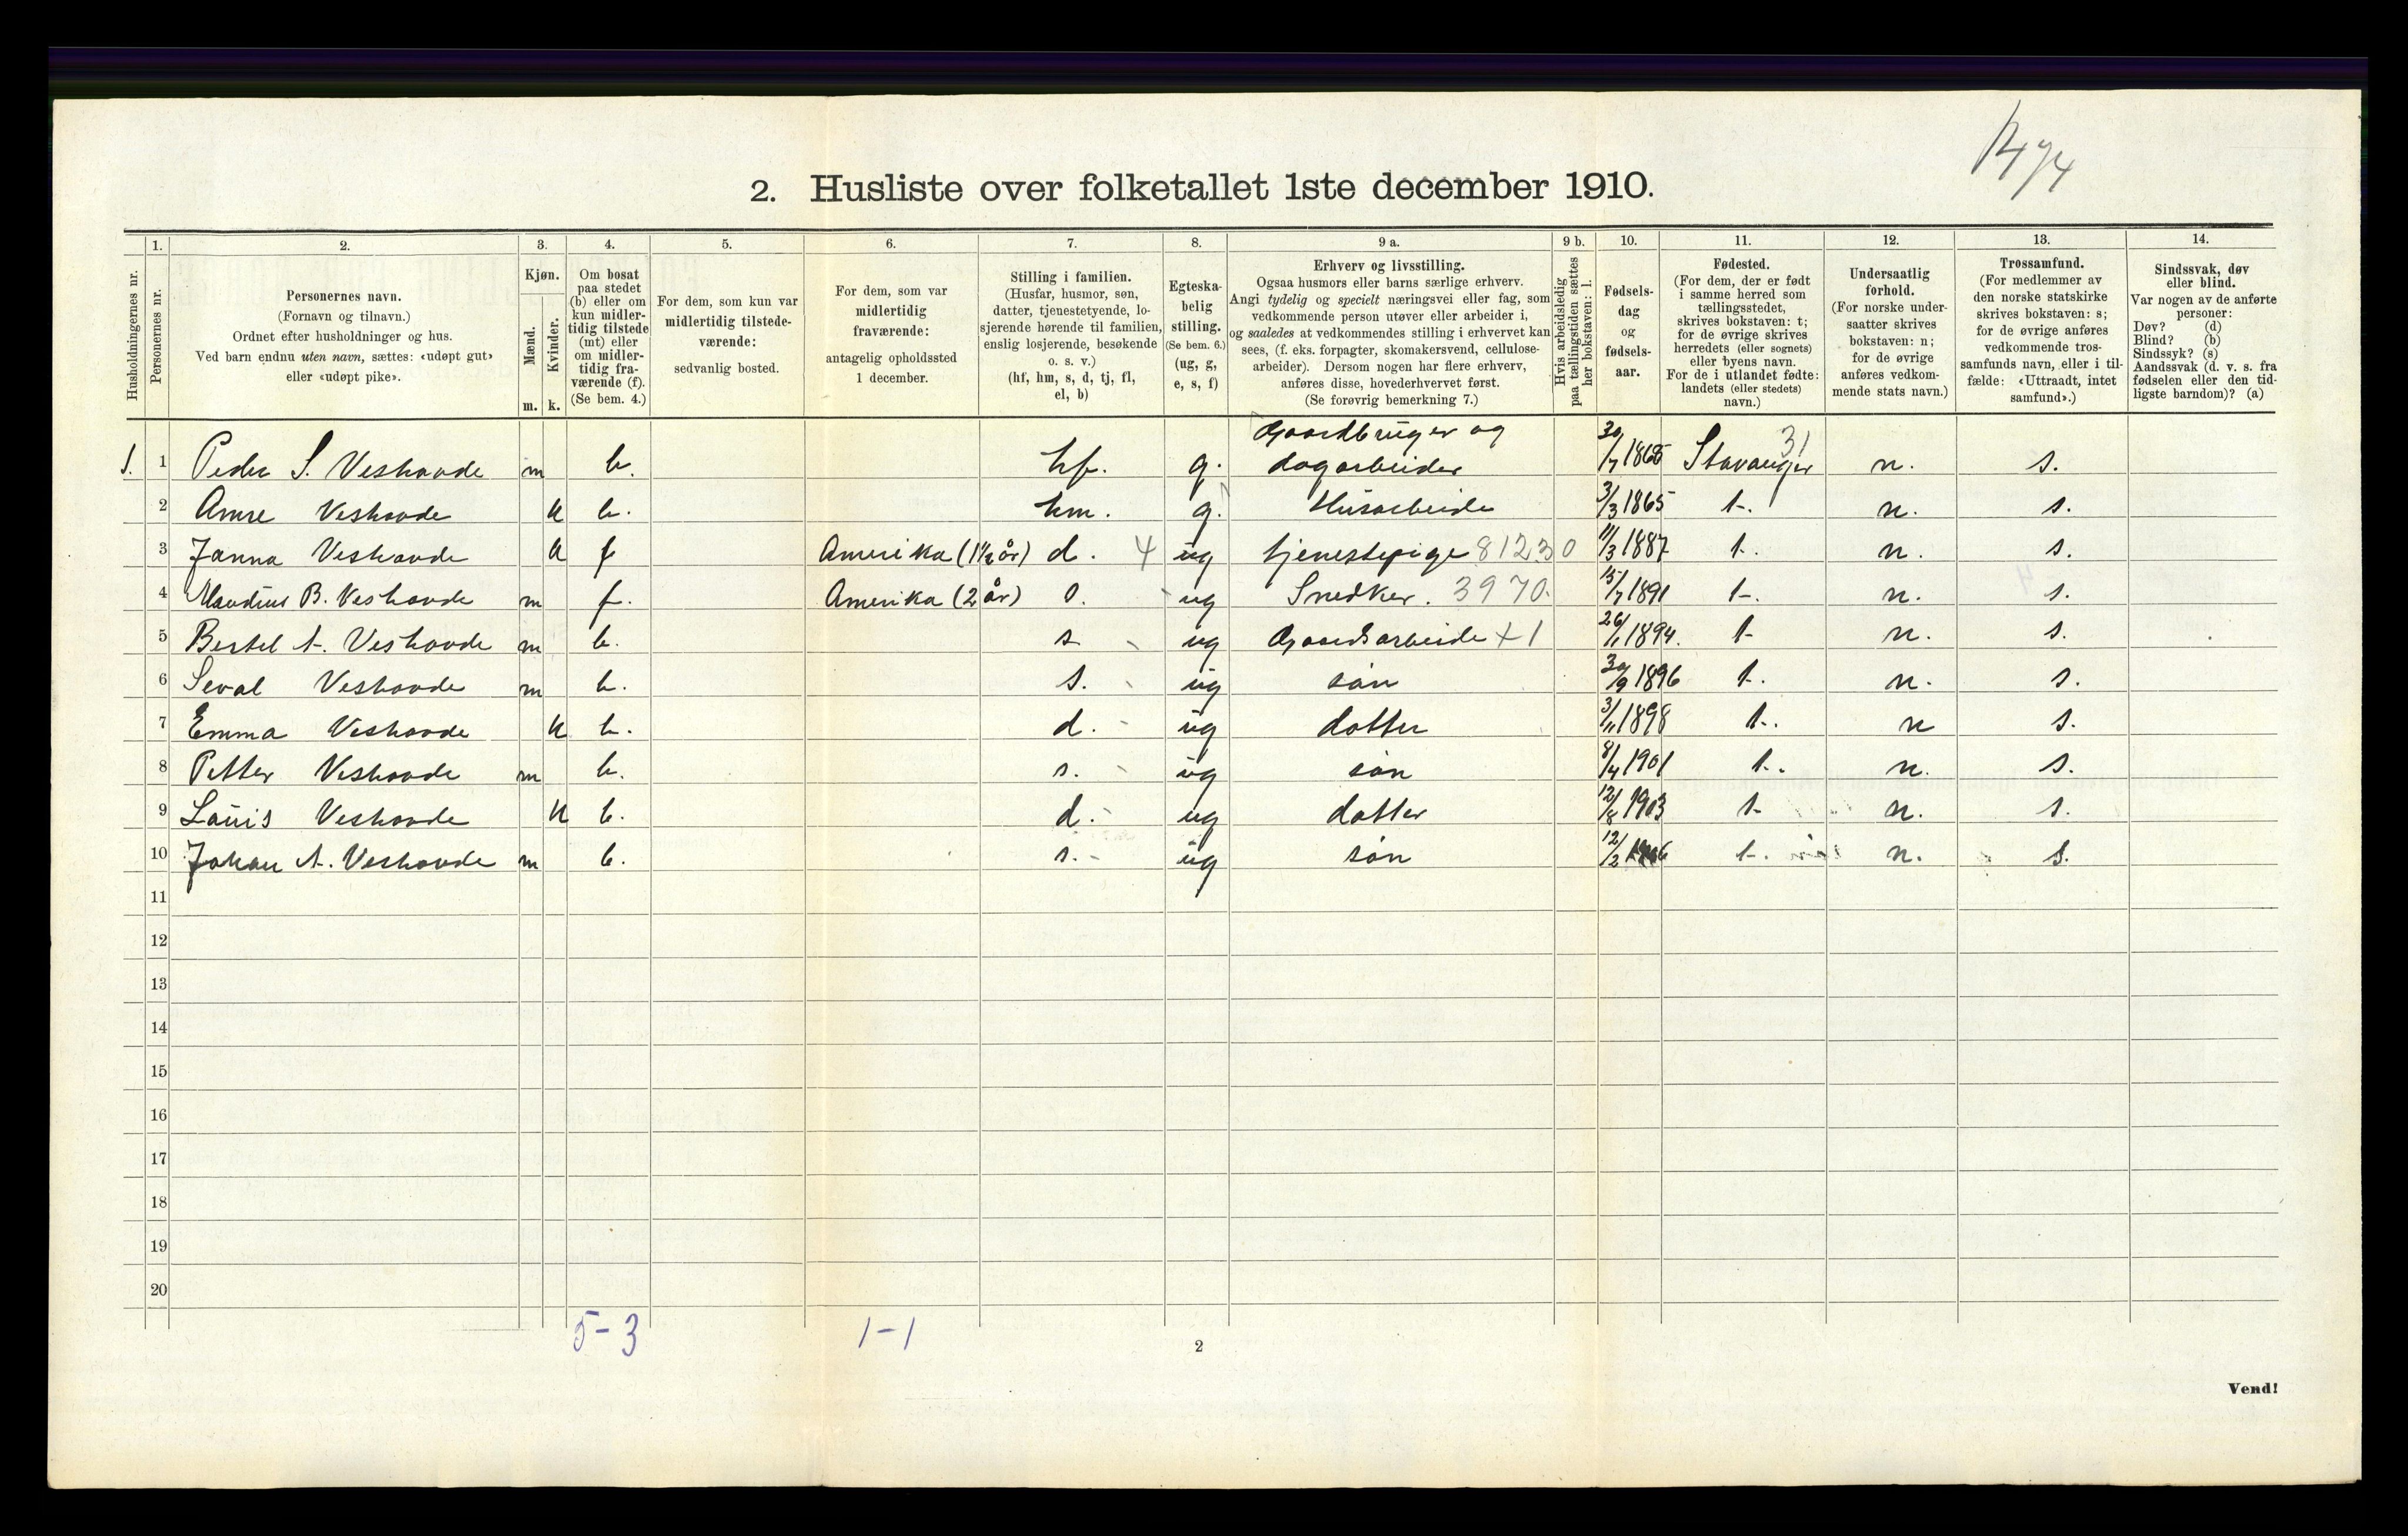 2. Husliste over folketallet 1ste december 1910.
1. 2. 3. 4. 5. 6. 7. 8. 9 a. 9 b. 10. 11. 12. 13. 14.
Husholdningernes nr.
Personernes nr.
Personernes navn.
(Fornavn og tilnavn.)
Ordnet efter husholdninger og hus.
Ved barn endnu uten navn, sættes: «udøpt gut»
eller «udøpt pike».
Kjøn.
Mænd.
Kvinder.
m. k.
Om bosat
paa stedet
(b) eller om
kun midler-
tidig tilstede
(mt) eller
om midler-
tidig fra-
værende (f).
(Se bem. 4.)
For dem, som kun var
midlertidig tilstede-
værende:
sedvanlig bosted.
For dem, som var
midlertidig
fraværende:
antagelig opholdssted
1 december.
Stilling i familien.
(Husfar, husmor, søn,
datter, tjenestetyende, lo-
sjerende hørende til familien,
enslig losjerende, besøkende
o. s. v.)
(hf, hm, s, d, tj, fl,
el, b)
Egteska-
belig
stilling.
(Se bem. 6.)
(ug, g,
e, s, f)
Erhverv og livsstilling.
Ogsaa husmors eller barns særlige erhverv.
Angi tydelig og specielt næringsvei eller fag, som
vedkommende person utøver eller arbeider i,
og saaledes at vedkommendes stilling i erhvervet kan
sees, (f. eks. forpagter, skomakersvend, cellulose-
arbeider). Dersom nogen har flere erhverv,
anføres disse, hovederhvervet først.
(Se forøvrig bemerkning 7.)
Hvis arbeidsledig
paa tællingstiden sættes
her bokstaven: l.
Fødsels-
dag
og
fødsels-
aar.
Fødested.
(For dem, der er født
i samme herred som
tællingsstedet,
skrives bokstaven: t;
for de øvrige skrives
herredets (eller sognets)
eller byens navn.
For de i utlandet fødte:
landets (eller stedets)
navn.)
Undersaatlig
forhold.
(For norske under-
saatter skrives
bokstaven: n;
for de øvrige
anføres vedkom-
mende stats navn.)
Trossamfund.
(For medlemmer av
den norske statskirke
skrives bokstaven: s;
for de øvrige anføres
vedkommende tros-
samfunds navn, eller i til-
fælde: «Uttraadt, intet
samfund».)
Sindssvak, døv
eller blind.
Var nogen av de anførte
personer:
Døv? (d)
Blind? (b)
Sindssyk? (s)
Aandssvak (d. v. s. fra
fødselen eller den tid-
ligste barndom)? (a)
Gaardbruger og 31
1. 1 Peder S. Veshovde m b. hf. g. dagarbeider 30/7 1868 Stavanger n. s.
2 Anne Veshovde k b. hm. g. Husarbeide 3/3 1865 t. n. s.
3 Janna Veshovde k f Amerika (1½ år) d. 4 ug tjenestepige 81230 11/3 1887 t. n. s.
4 B. Veshovde m f. Amerika (2 år) s. ug Snedker. 3970. 15/7 1891 t. n. s.
5 Bertel A. Veshovde m b. s ug Gaardsarbeide +1 26/1 1894. t n. s.
6 Seval Veshovde m b. s. ug søn 30/9 1896 t. n. s.
7 Emma Veshovde k b. d. ug datter 3/11 1898 t. n s.
8 Petter Veshovde m b. s. ug søn 8/4 1901 t. n. s.
9 Lauis Veshovde k b. d. ug datter 12/8 1903 t n. s.
10 Johan A. Veshovde m b. s. ug søn 12/2 1906 t. n. s.
11
12
13
14
15
16
17
18
19
20
5-3 1-1
2
Vend!